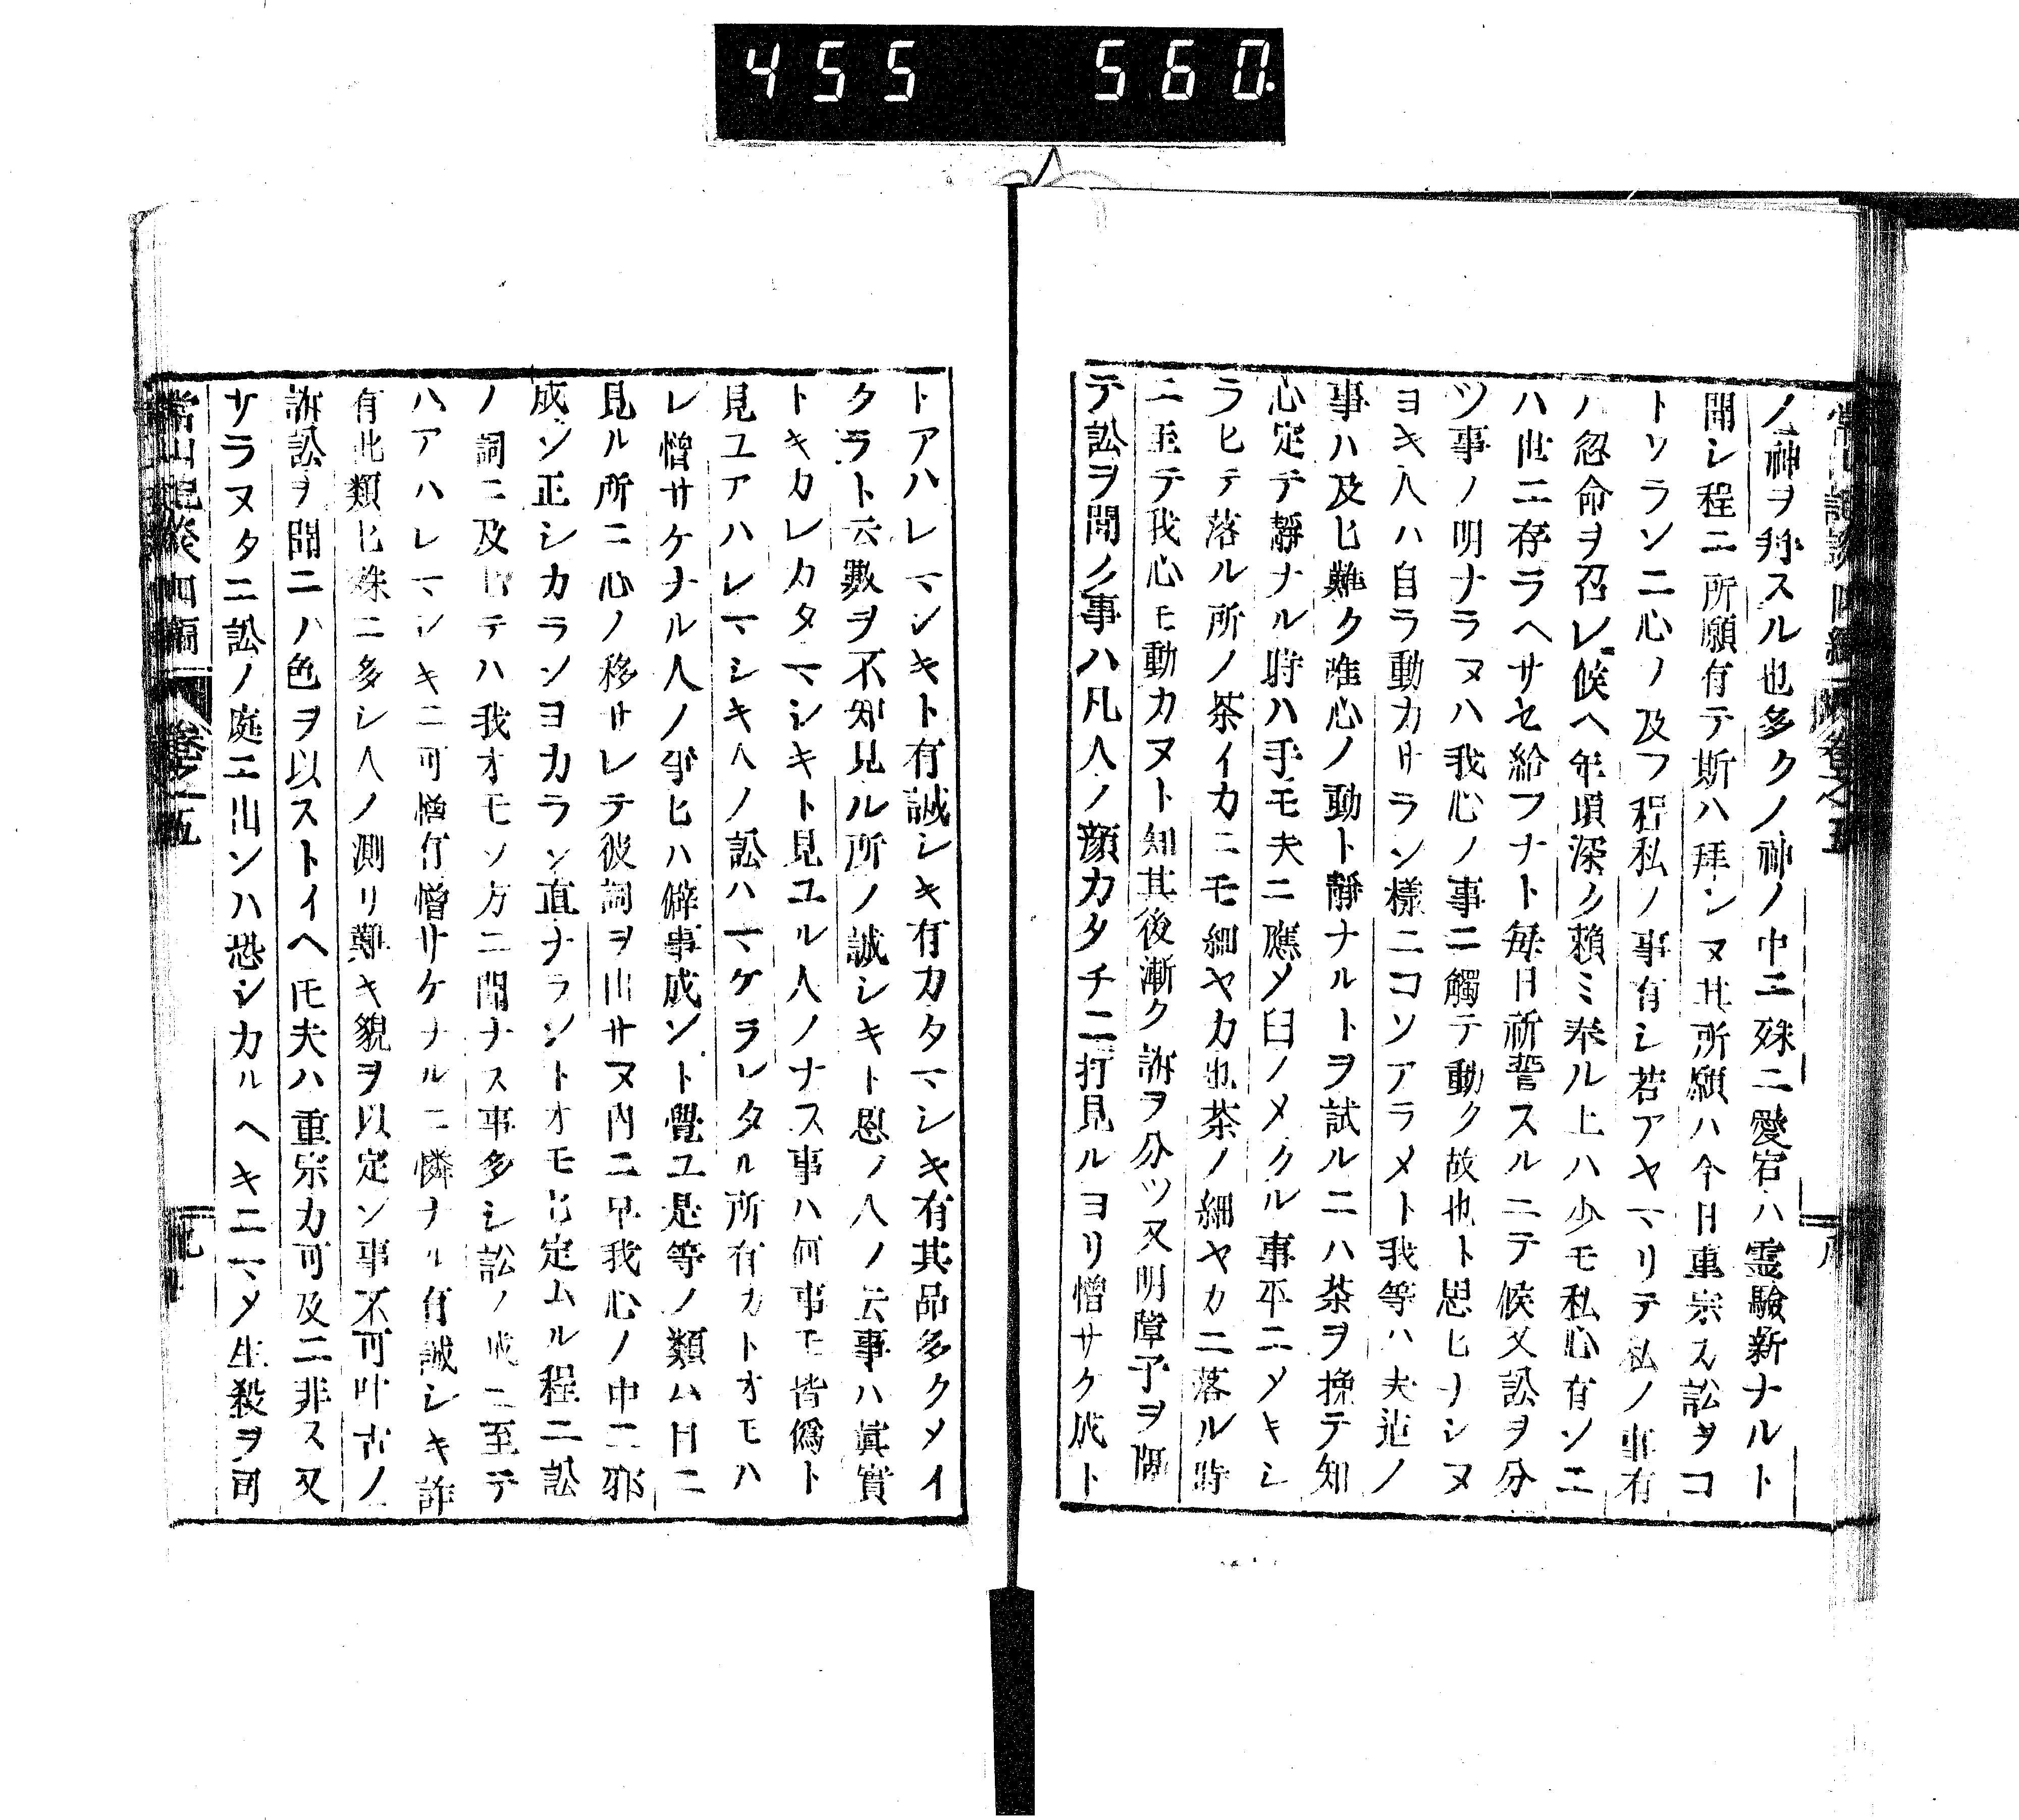 455 560.
ノ神ヲ拜スル也多クノ神ノ中ニ殊ニ愛宕ハ霊驗新ナルト
聞シ程ニ所願有テ斯ハ拜シヌ其所願ハ今日重宗ス訟ヲコ
トソランニ心ノ及フ程私ノ事有シ若アヤマリテ私ノ事有
ハ忽命ヲ召レ候ヘ年頃深ク頼ミ奉ル上ハ少モ私心有ンニ
ハ世ニ存ラヘサセ給フナト毎日祈誓スルニテ候又訟ヲ分
ツ事ノ明ナラヌハ我心ノ事ニ觸テ動ク故也ト思ヒナシヌ
ヨキ人ハ自ラ動カサラン樣ニコソアラメト我等ハ夫迠ノ
事ハ及ヒ難ク唯心ノ動ト靜ナルトヲ試ルニハ茶ヲ挽テ知
心定テ靜ナル時ハ手モ夫ニ應メ臼ノメクル事平ニメキシ
ラヒテ落ル所ノ茶イカニモ細ヤカ也茶ノ細ヤカニ落ル時
ニ至テ我心モ動カヌト知其後漸ク訴ヲ分ツ又明障子ヲ隔
テ訟ヲ聞ノ事ハ凡人ノ顔カタチニ打見ルヨリ憎サク成ト
トアハレマシキト有誠シキ有カタマシキ有其品多クメイ
クラト云數ヲ不知見ル所ノ誠シキト思ノ人ノ云事ハ眞實
トキカレカタマシキト見ユル人ノナス事ハ何事モ皆僞ト
見ユアハレマシキ人ノ訟ハマケラレタル所有カトオモハ
レ憎サケナル人ノ爭ヒハ僻事成ント覺ユ是等ノ類ハ目ニ
見ル所ニ心ノ移サレテ彼詞ヲ出サヌ内ニ早我心ノ中ニ邪
成ン正シカランヨカラン直ナラントオモヒ定ムル程ニ訟
ノ詞ニ及ヒテハ我オモソ方ニ聞ナス事多シ訟ノ成ニ至テ
ハアハレマシキニ可憎有憎サケナルニ憐ナル有誠シキ詐
有此類ヒ殊ニ多シ人ノ測リ難キ貌ヲ以定ン事不可叶古ノ
訴訟ヲ聞ニハ色ヲ以ストイヘ𪜈夫ハ重宗カ可及ニ非ス又
サラヌタニ訟ノ庭ニ出ンハ恐シカルヘキニマメ生殺ヲ司
常山紀談四編 卷之五 九